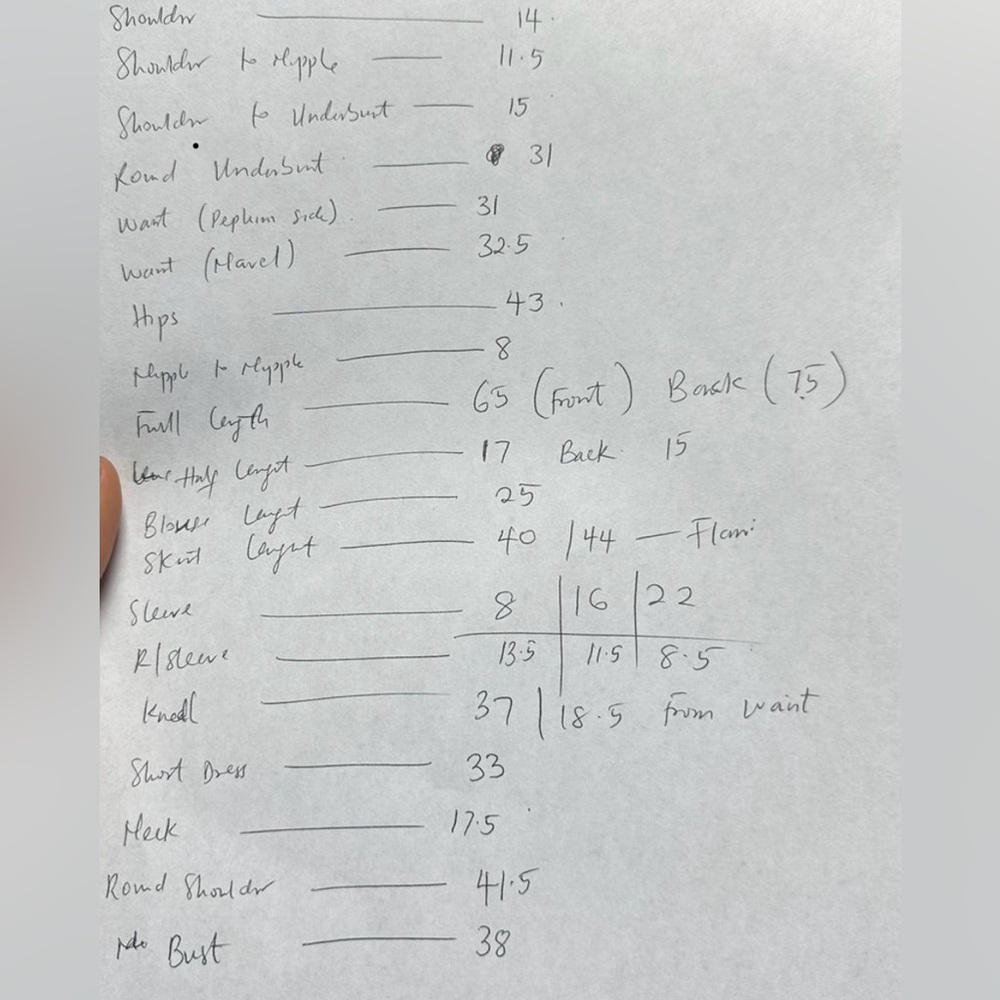 Shouldr 14
Shouldr to Nypple 11.5
Shouldr to Underbust 15
Round Underbust 31
Waist (Peplum side) 31
Waist (Navel) 32.5
Hips 43
Nipple to Nypple 8
Full length 65 (Front) Back (75)
Half lenght 17 Back 15
Blouse lenght 25
Skirt lenght 40 / 44 —
Sleeve 8 | 16 | 22
R/Sleeve 13.5 | 11.5 | 8.5
37 | 18.5 from waist
Short Dress 33
Neck 17.5
Round Shouldr 41.5
Bust 38